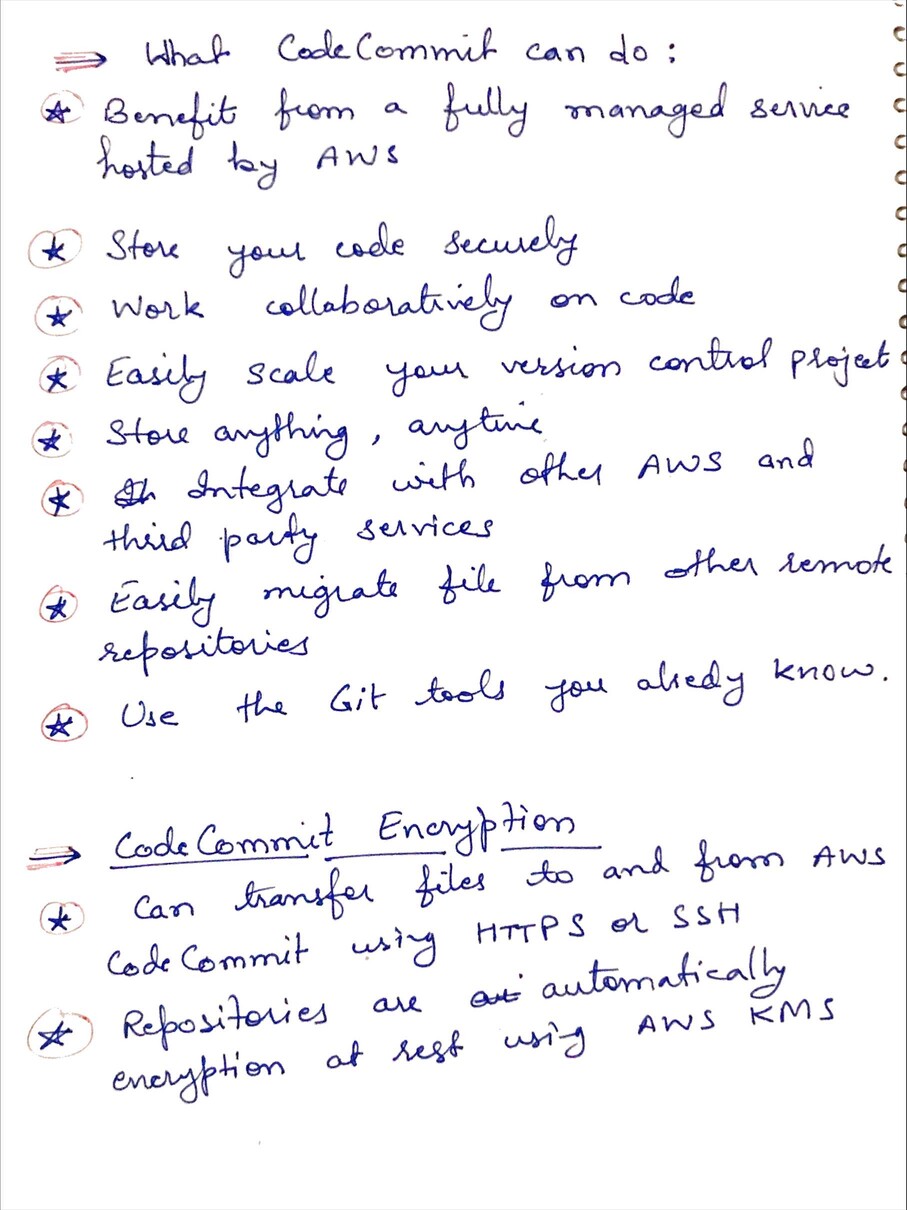 ⇒ What CodeCommit can do :
★ Benefit from a fully managed service
hosted by AWS
★ Store your code securely
★ Work collaboratively on code
★ Easily scale your version control project
★ Store anything, anytime
★ Integrate with other AWS and
third party services
★ Easily migrate file from other remote
repositories
★ Use the Git tools you alredy know.
⇒ CodeCommit Encryption
★ Can transfer files to and from AWS
CodeCommit using HTTPS or SSH
★ Repositories are automatically
encryption at rest using AWS KMS